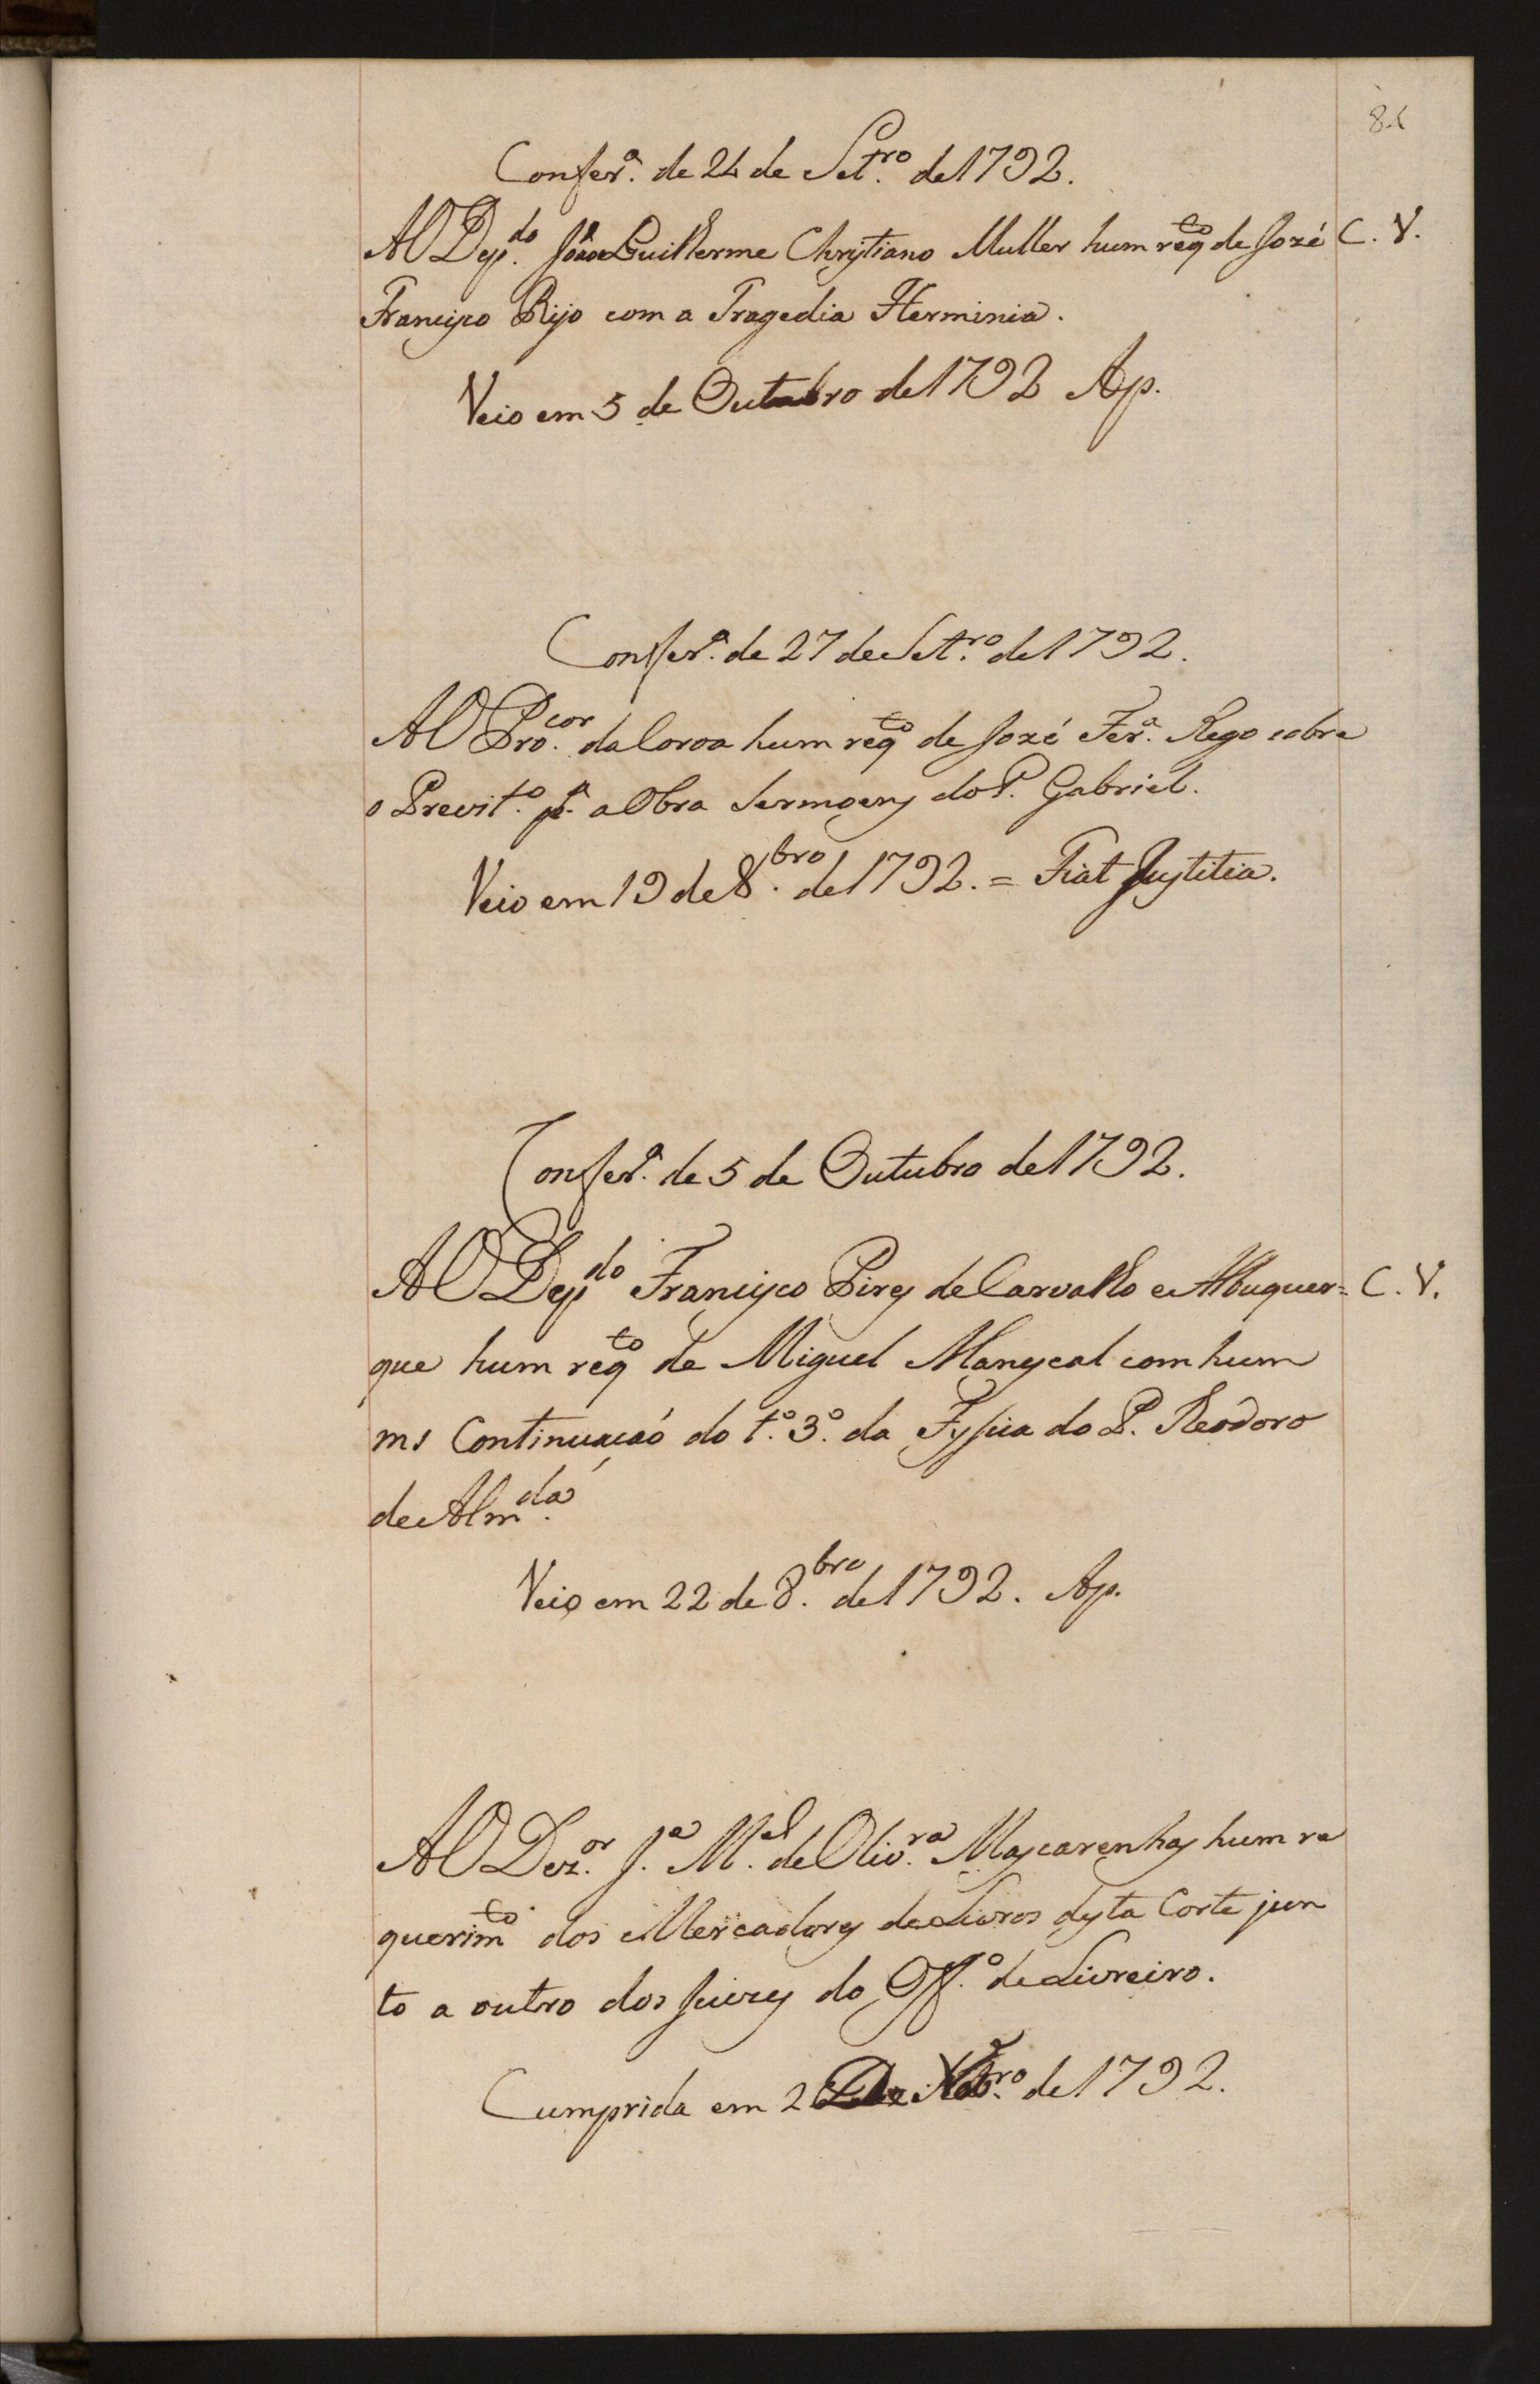 Confer.ª de 24 de Set.ro de 1792.
Ao Dep.do João Guilherme Christiano Muller hum reqto de Jozé C. V.
Francisco Rijo com a Tragedia Herminia.
Veio em 5 de Outubro de 1792 Ap.
Confer.ª de 27 de Set.ro de 1792.
Ao Pro.cor da Coroa hum reqto de Jozé Fer.ª Rego sobre
o Previt.º p.ª a Obra Sermoens do P. Gabriel.
Veio em 19 de 8.bro de 1792. = Fiat Justitia.
Confer.ª de 5 de Outubro de 1792.
Ao Depdo Francisco Pires de Carvalho e Albuquer= C. V.
que hum reqto de Miguel Manescal com hum
ms Continuação do t.º 3.º da Fysica do P. Teodoro
de Alm.da
Veio em 22 de 8.bro de 1792. Ap.
Ao Dez.or J.e M.el de Oliv.ra Mascarenhas hum re
querimto dos Mercadores de Livros desta Corte jun
to a outro dos Juizes do Off.º de Livreiro.
Cumprida em 2 de Nobr.ro de 1792.